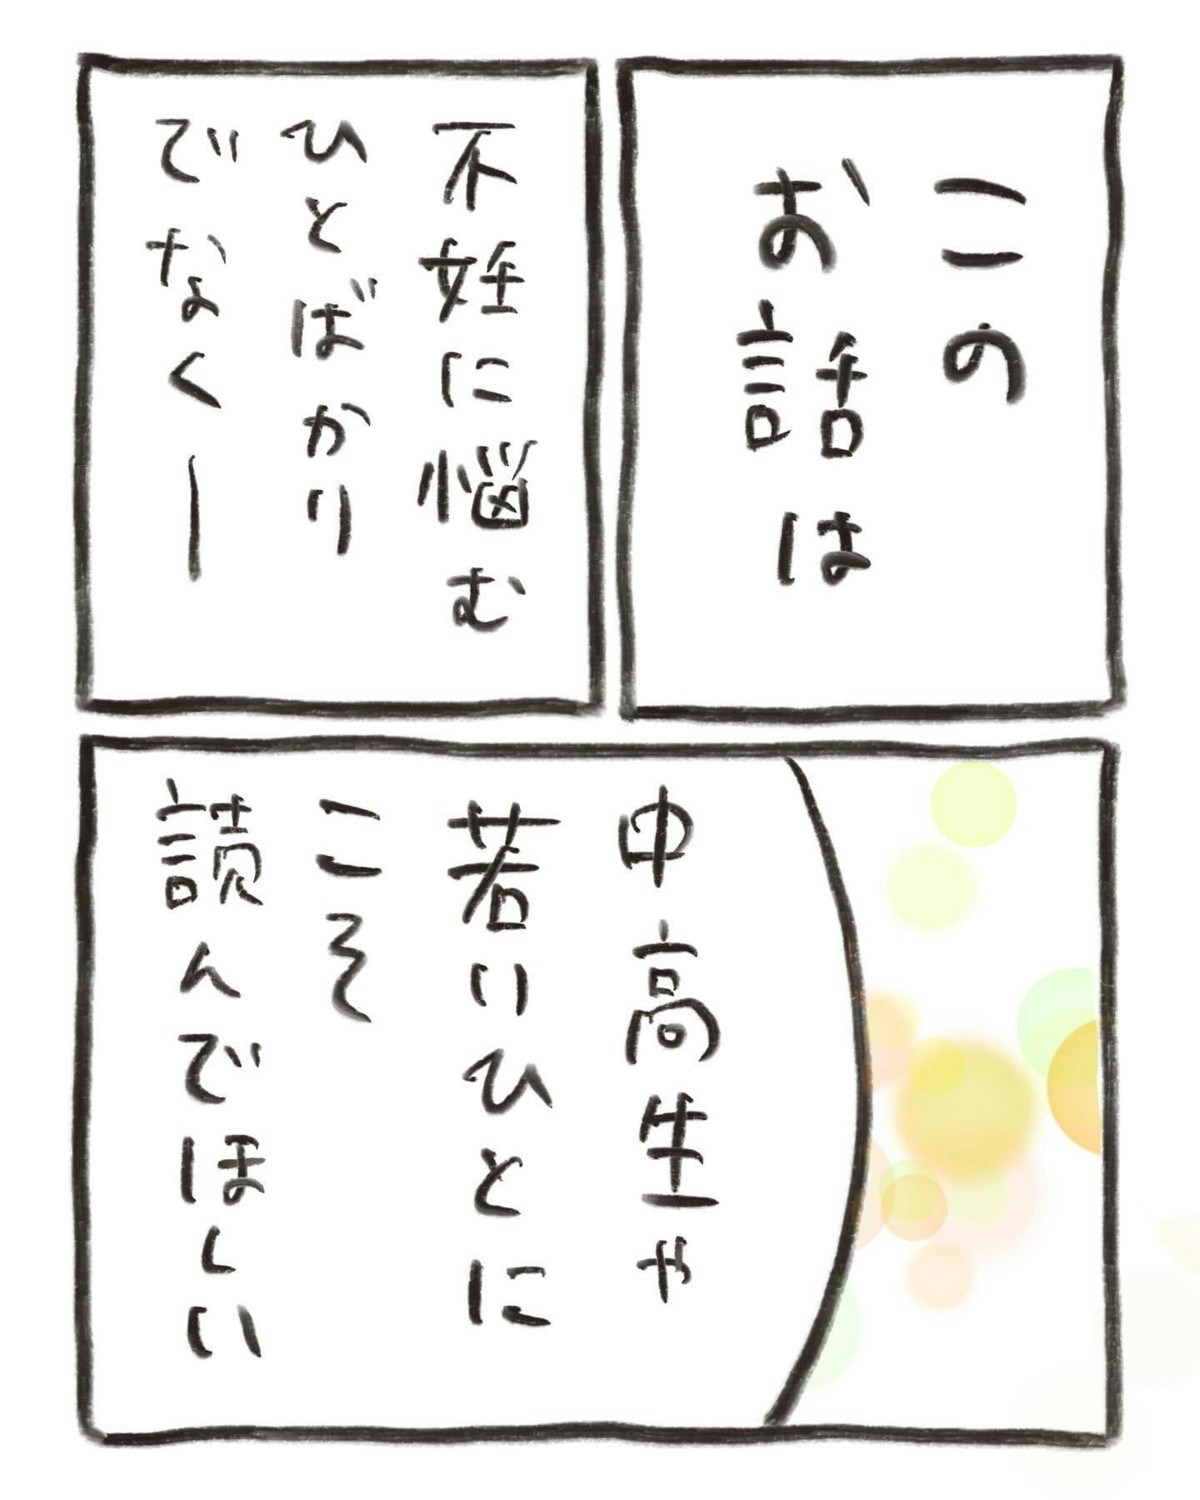 この
お話は
不妊に悩む
ひとばかり
でなくー
中高生や
若いひとに
こそ
読んでほしい